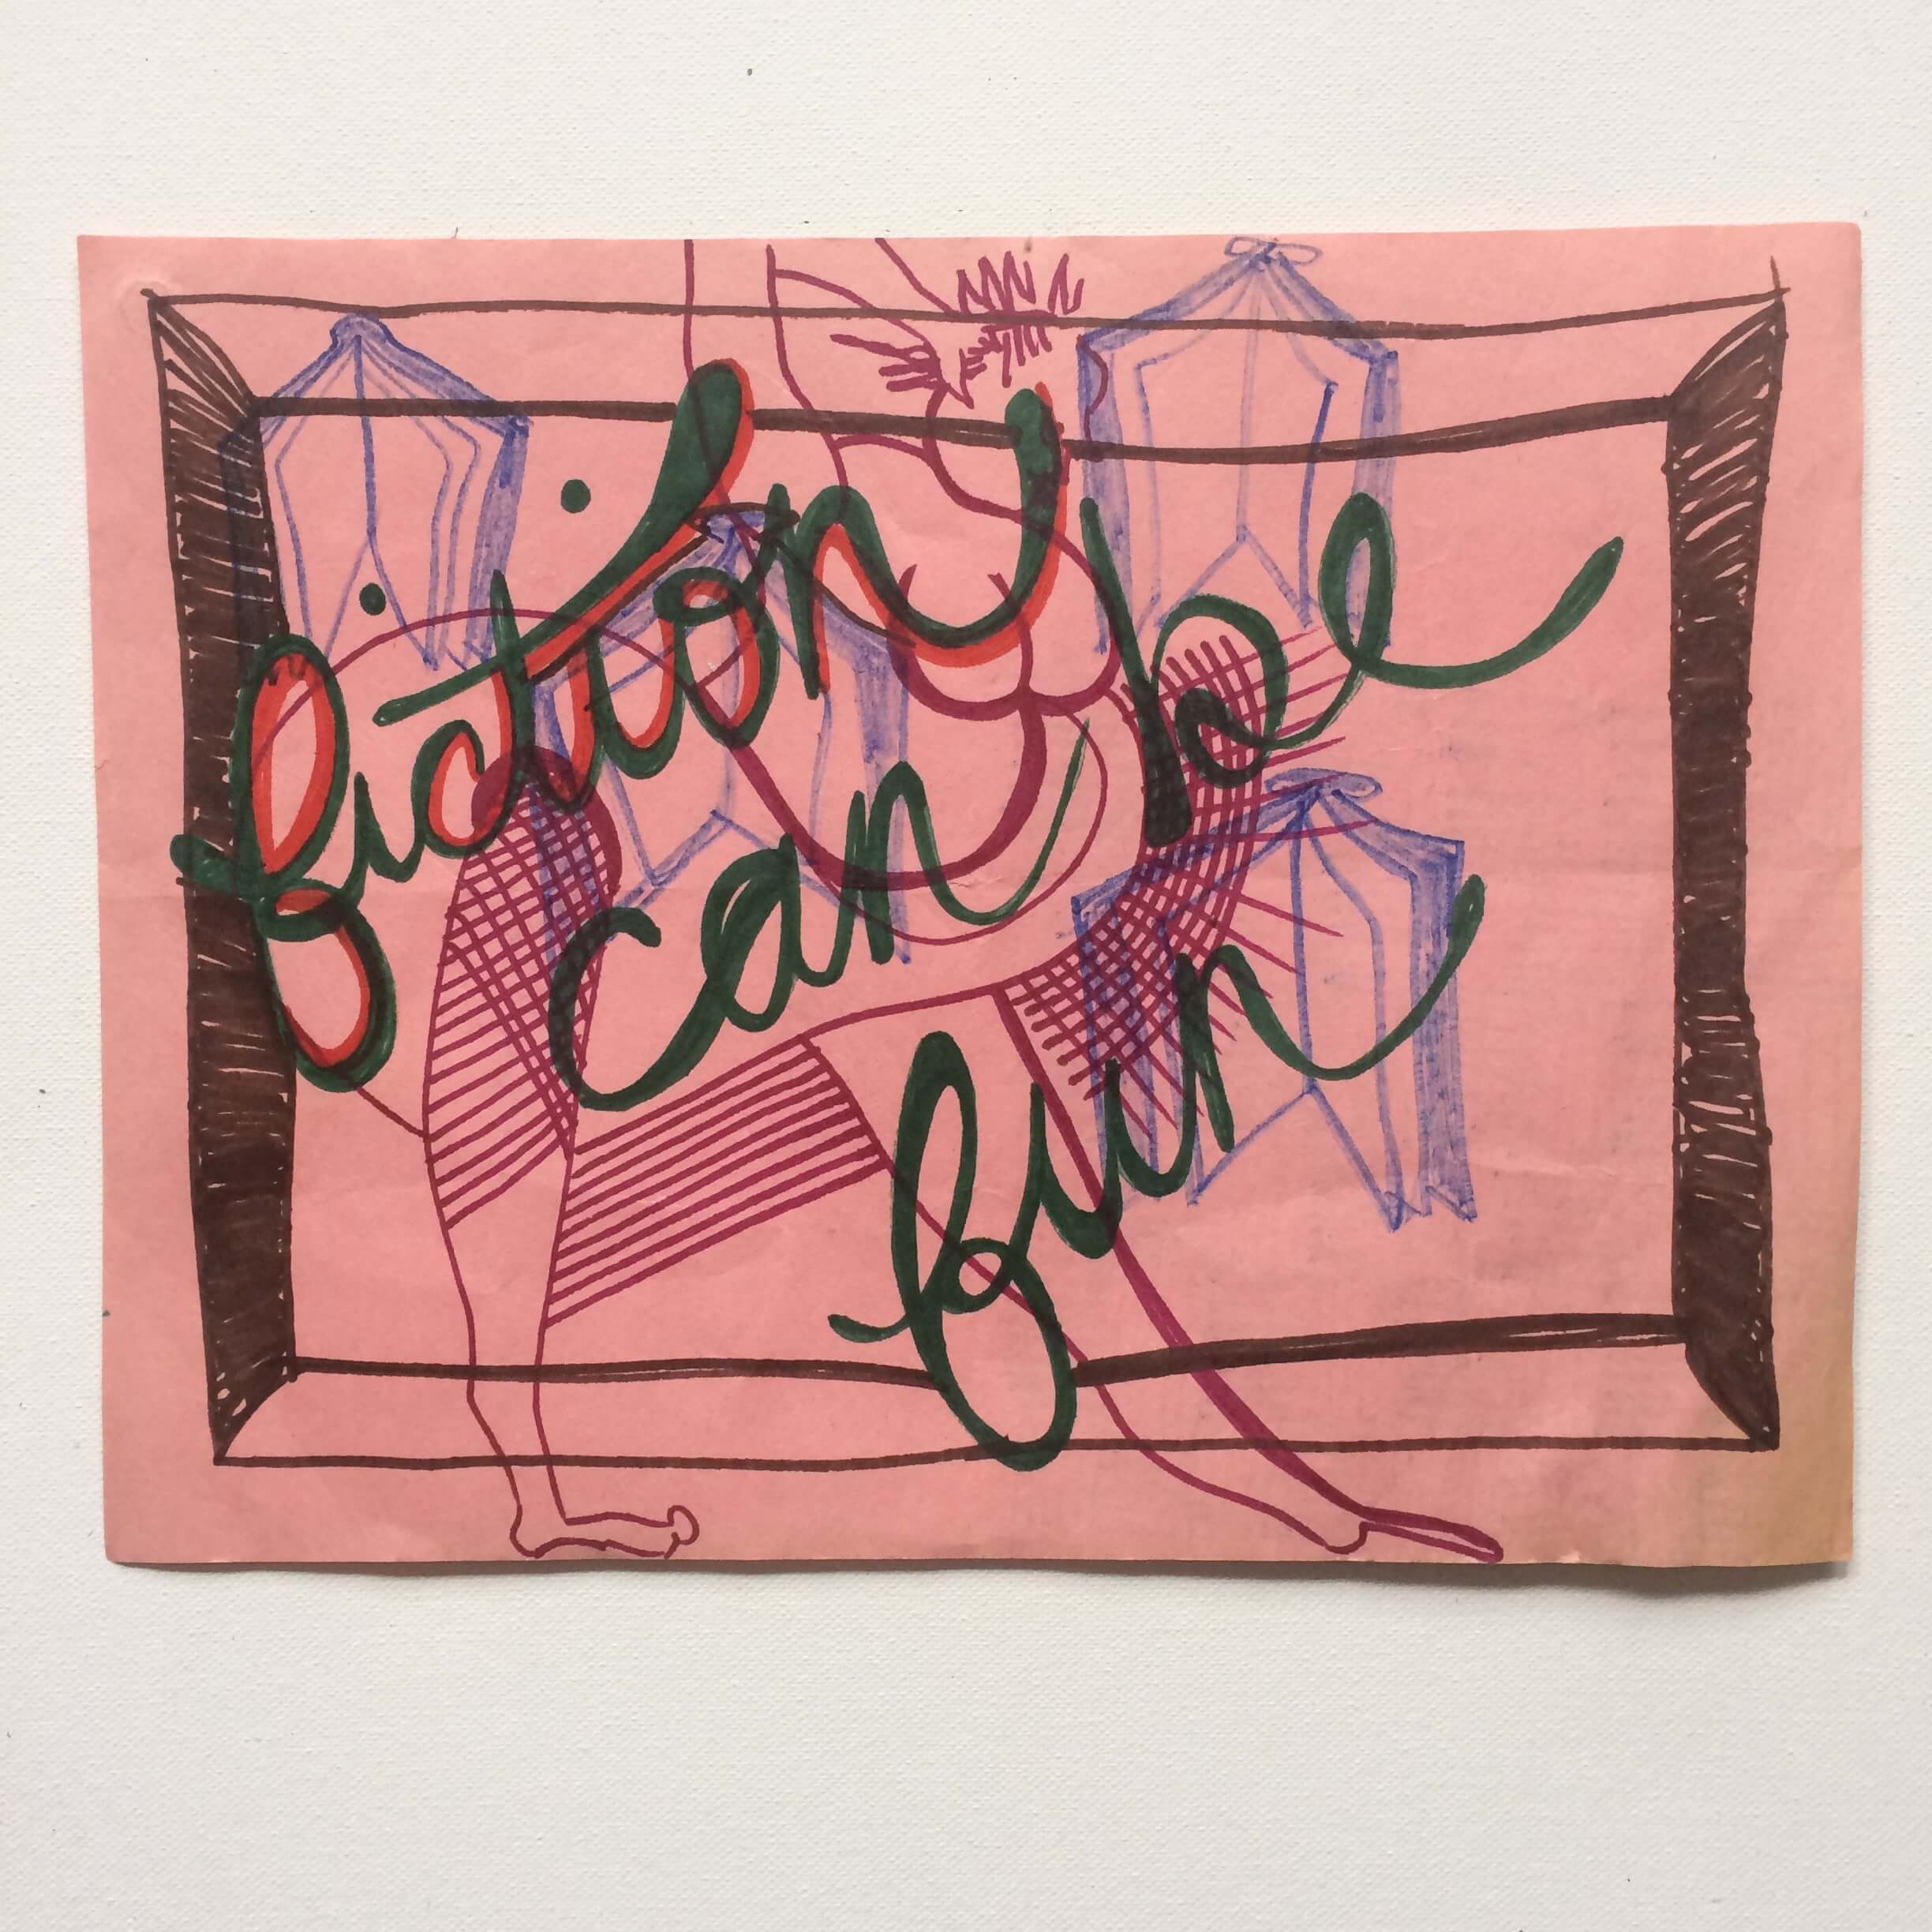 fiction
can be
fun